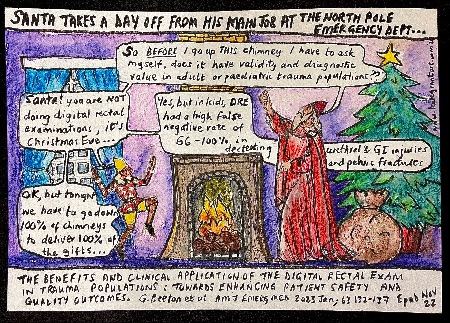 SANTA TAKES A DAY OFF FROM HIS MAIN JOB AT THE NORTH POLE
EMERGENCY DEPT...
SO BEFORE I go up THIS chimney I have to ask
myself, does it have validity and diagnostic
value in adult or paediatric trauma populations??
Santa! you are NOT
doing digital rectal
examinations, it's
Christmas Eve...
Yes, but in kids, DRE
had a high false
negative rate of
66-100% in
detecting
urethral & GI injuries
and pelvic fractures
OK, but tonight
we have to go down
100% of chimneys
to deliver 100% of
the gifts...
THE BENEFITS AND CLINICAL APPLICATION OF THE DIGITAL RECTAL EXAM
IN TRAUMA POPULATIONS: TOWARDS ENHANCING PATIENT SAFETY AND
QUALITY OUTCOMES. et al Am J Emerg Med 2023 Jan; 63 132-137 Epub Nov
22